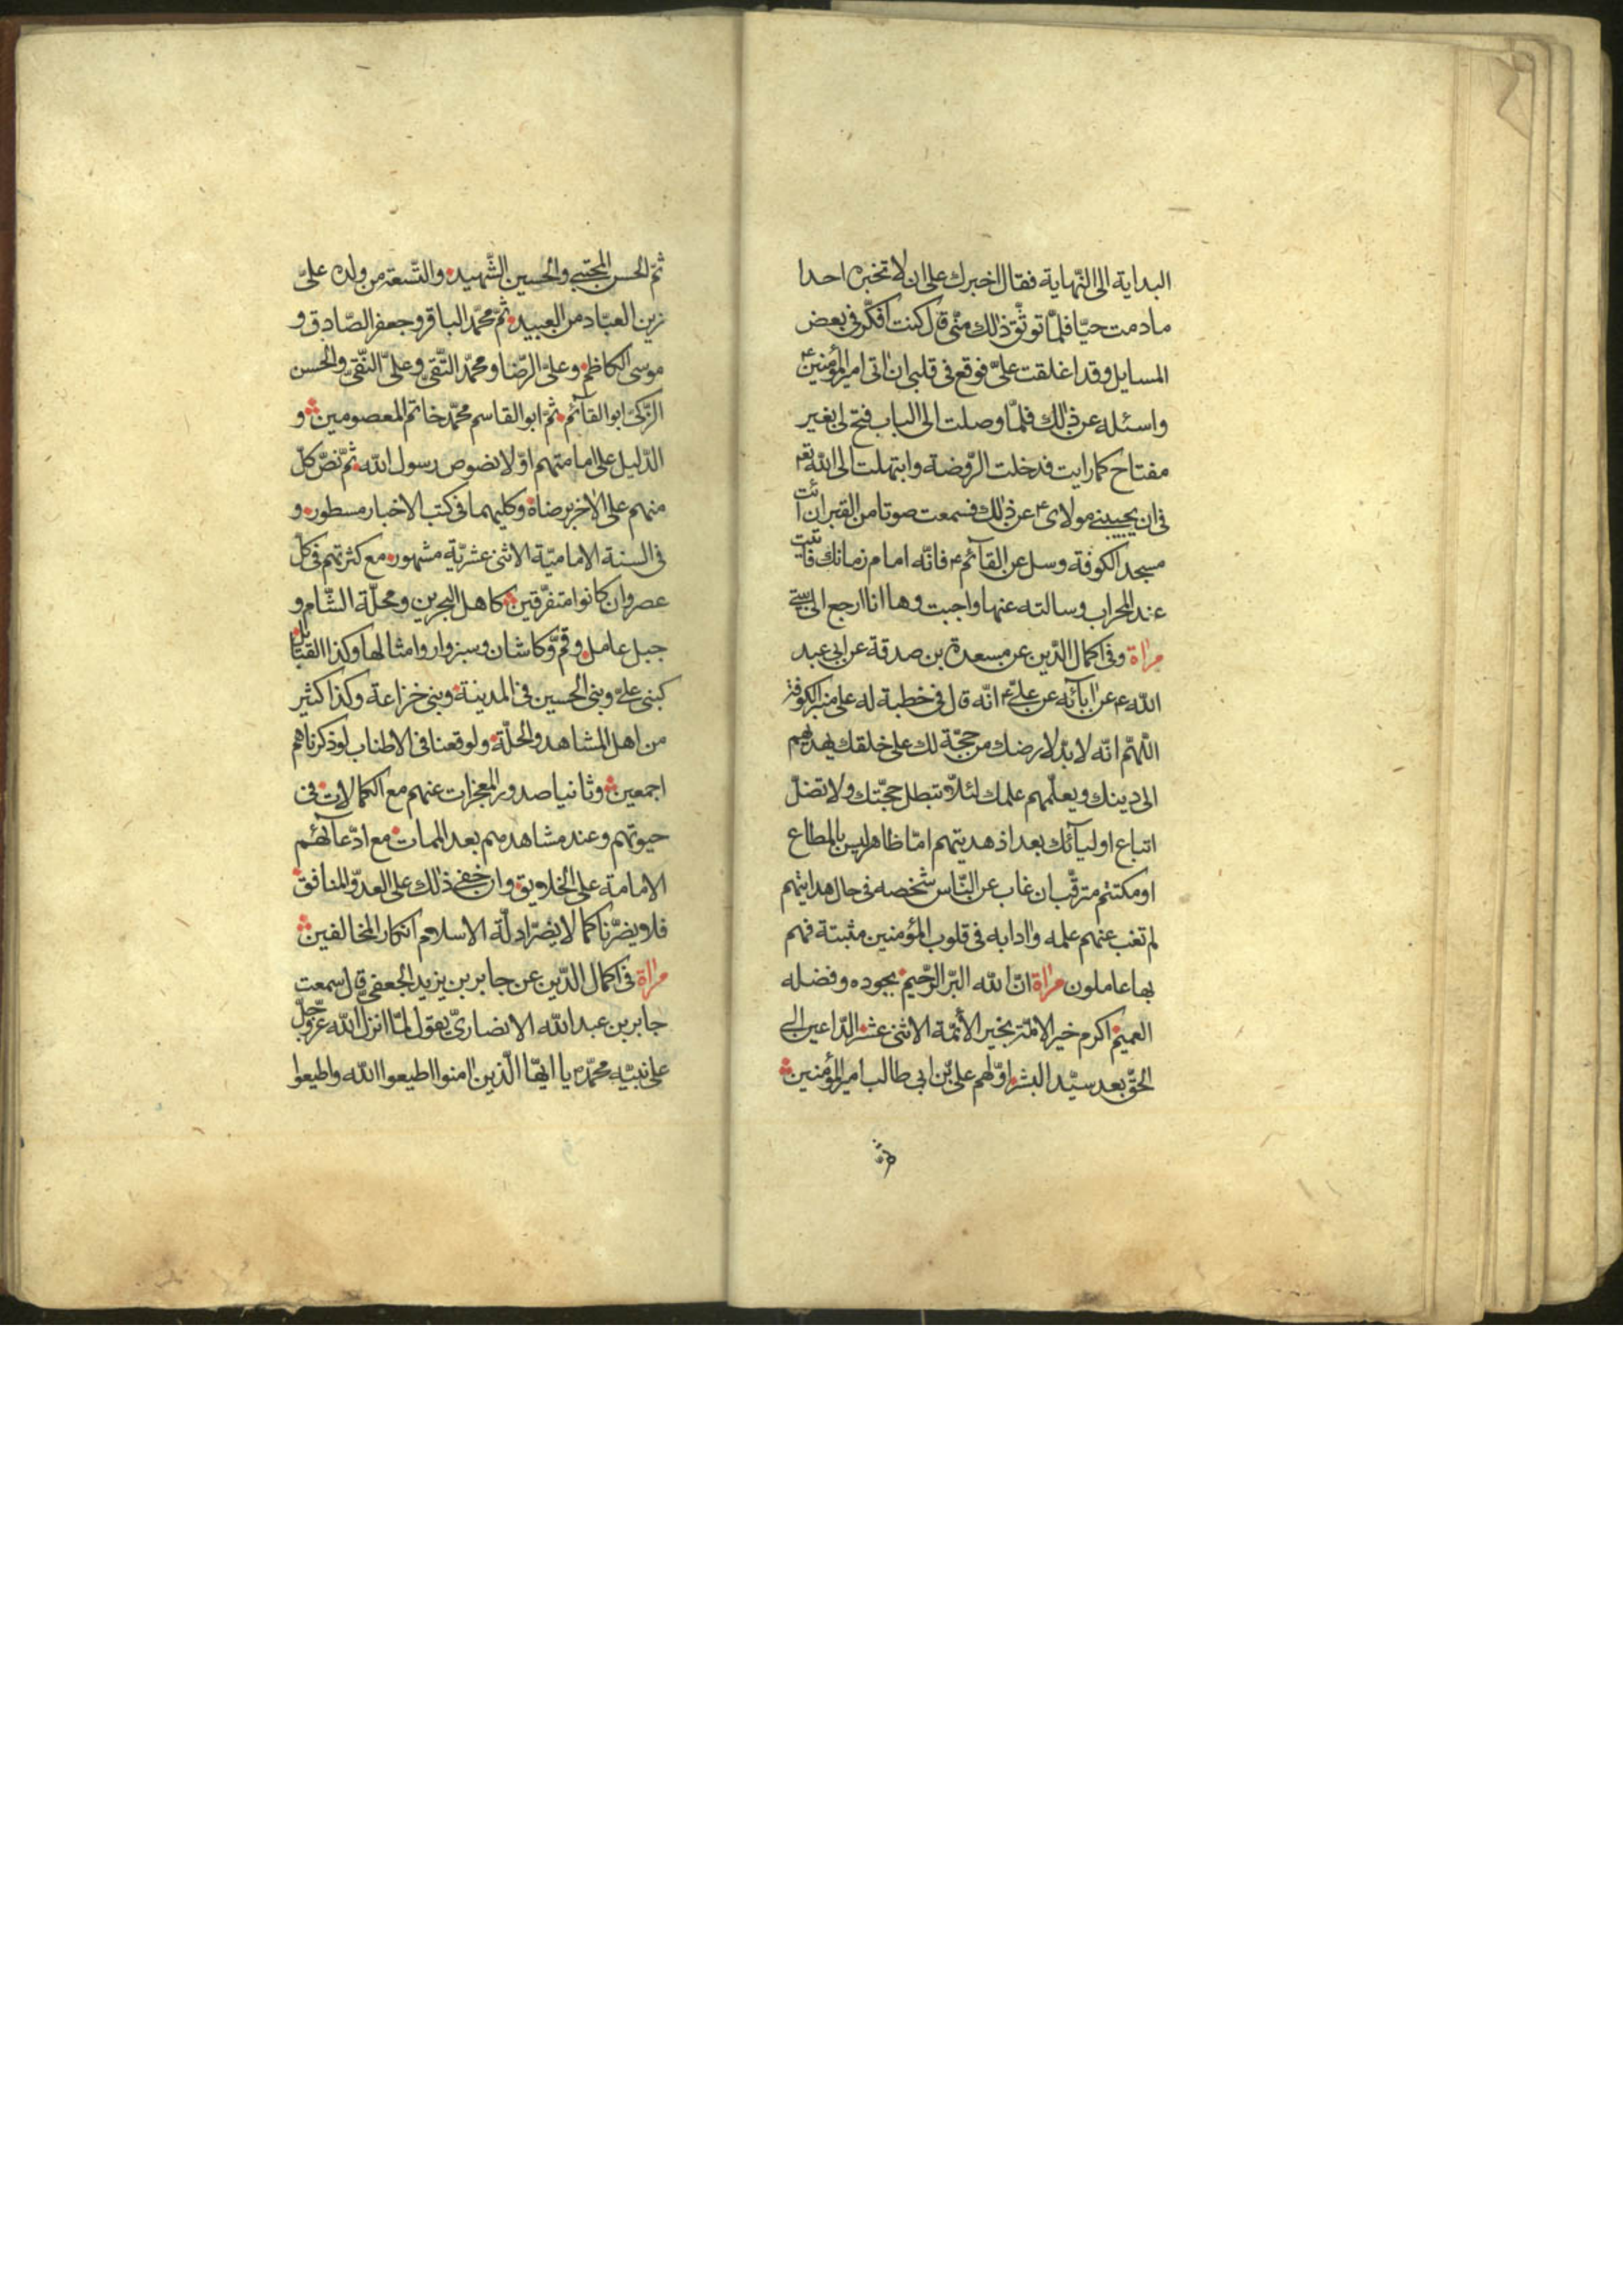 البداية الى النّهاية فقال اخبرك على ان لا تخبر به احدا
مادمت حيّا فلمّا توثّق ذلك منّى قال كنت افكّر فى بعض
المسايل وقد اغلقت علىّ فوقع فى قلبى ان اتى امير المؤمنين ع
واسئله عن ذلك فلمّا وصلت الى الباب فتح لى بغير
مفتاح كما رايت فدخلت الرّوضة وابتهلت الى الله تع
فى ان يجيبنى مولاى ع عن ذلك فسمعت صوتا من القبر ان ائت
مسجد الكوفة وسل عن القآئم ع فانّه امام زمانك فاتيت
عند المحراب وسالته عنها واجبت وها انا ارجع الى بيتى
مراة وفى اكمال الدّين عن مسعدة بن صدقة عن ابى عبد
الله ع عن ابآئه عن علىّ ع انّه قال فى خطبة له على منبر الكوفة
اللّهمّ انّه لا بدّ لارضك من حجّة لك على خلقك يهديهم
الى دينك ويعلّمهم علمك لئلّا تبطل حجّتك ولا تضلّ
اتباع اوليآئك بعد اذ هديتهم امّا ظاهر ليس بالمطاع
او مكتتم مترقّب ان غاب عن النّاس شخصه فى حال هدايتهم
لم تغب عنهم علمه وادابه فى قلوب المؤمنين مثبتة فهم
بها عاملون مراة انّ الله البرّ الرّحيم بجوده وفضله
العميم اكرم خير الامّة بخير الأئمّة الاثنى عشر الدّاعين الى
الحقّ بعد سيّد البشر اوّلهم علىّ بن ابى طالب امير المؤمنين
ثمّ
ثمّ الحسن المجتبى والحسين الشّهيد والتّسعة من ولده علىّ
زين العبّاد من العبيد ثمّ محمّد الباقر وجعفر الصّادق و
موسى الكاظم وعلىّ الرّضا ومحمّد التّقى وعلىّ النّقىّ والحسن
الزّكىّ ابو القآئم ثمّ ابو القاسم محمّد خاتم المعصومين و
الدّليل على امامتهم اوّلا نصوص رسول الله ثمّ نصّ كلّ
منهم على الاخر برضاه وكليهما فى كتب الاخبار مسطور و
فى السنة الاماميّة الاثنى عشريّة مشهور مع كثرتهم فى كلّ
عصر وان كانوا متفرّقين كاهل البحرين ومحلّة الشّام و
جبل عامل وقمّ وكاشان وسبزوار وامثالها وكذا القبائل
كبنى علىّ وبنى الحسين فى المدينة وبنى خزاعة وكذا كثير
من اهل المشاهد والحلّة ولوقعنا فى الاطناب لو ذكرناهم
اجمعين وثانيا صدور المعجزات عنهم مع الكمالات فى
حيوتهم وعند مشاهدهم بعد الممات مع ادّعآئهم
الامامة على الخلايق وان خفى ذلك على العدوّ المنافق
فلا يضرّنا كما لا يضرّ ادلّة الاسلام انكار المخالفين
مراة فى اكمال الدّين عن جابر بن يزيد الجعفى قال سمعت
جابر بن عبد الله الانصارىّ يقول لمّا انزل الله عزّ وجلّ
على نبيّه محمّد يا ايّها الّذين امنوا اطيعوا الله واطيعوا